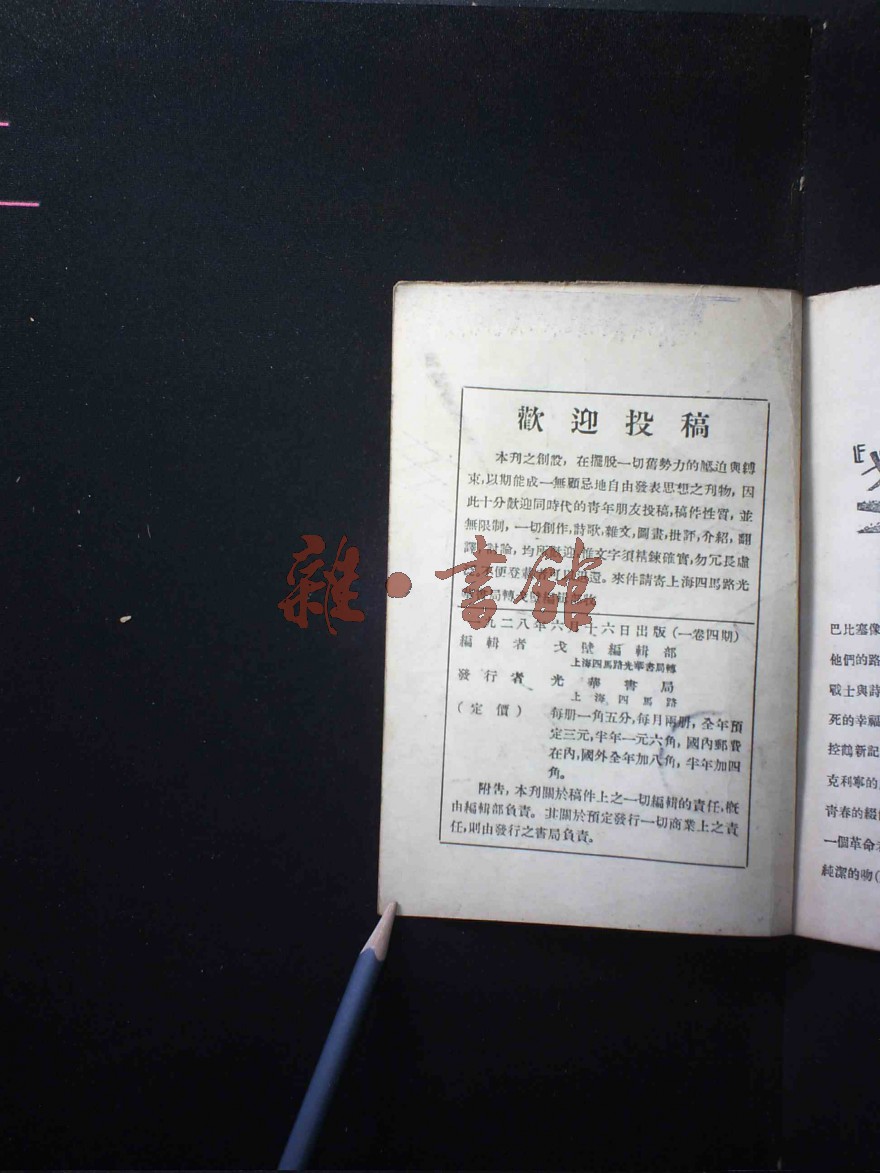 歡迎投稿
本刊之創設，在擺脫一切舊勢力的壓迫與縛
束，以期能成一無顧忌地自由發表思想之刊物，因
此十分歡迎同時代的青年朋友投稿，稿件性質，並
無限制，一切創作，詩歌，雜文，圖畫，批評，介紹，翻
譯，討論，均所歡迎，惟文字須精鍊確實，勿冗長虛
不便登載 退還。來件請寄上海四馬路光
局轉 編輯部
雜·書館
九二八年六月十六日出版（一卷四期）
編輯者 戈壁編輯部
上海四馬路光華書局轉
發行者 光華書局
上海四馬路
（定價） 每册一角五分，每月兩册，全年預
定三元，半年一元六角，國內郵費
在內，國外全年加八角，半年加四
角。
附告，本刊關於稿件上之一切編輯的責任，概
由編輯部負責。非關於預定發行一切商業上之責
任，則由發行之書局負責。
巴比塞像
他們的路
戰士與詩
死的幸福
控鶴新記
克利寧的
青春的綴
一個革命
純潔的吻